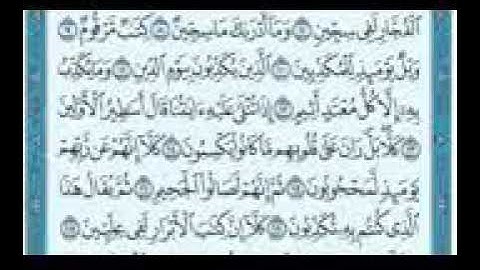 ٱلْفُجَّارِ لَفِى سِجِّينٍ ٧ وَمَآ أَدْرَىٰكَ مَا سِجِّينٌ ٨ كِتَٰبٌ مَّرْقُومٌ ٩
وَيْلٌ يَوْمَئِذٍ لِّلْمُكَذِّبِينَ ١٠ ٱلَّذِينَ يُكَذِّبُونَ بِيَوْمِ ٱلدِّينِ ١١ وَمَا يُكَذِّبُ
بِهِۦٓ إِلَّا كُلُّ مُعْتَدٍ أَثِيمٍ ١٢ إِذَا تُتْلَىٰ عَلَيْهِ ءَايَٰتُنَا قَالَ أَسَٰطِيرُ ٱلْأَوَّلِينَ
١٣ كَلَّا بَلْ رَانَ عَلَىٰ قُلُوبِهِم مَّا كَانُوا۟ يَكْسِبُونَ ١٤ كَلَّآ إِنَّهُمْ عَن رَّبِّهِمْ
يَوْمَئِذٍ لَّمَحْجُوبُونَ ١٥ ثُمَّ إِنَّهُمْ لَصَالُوا۟ ٱلْجَحِيمِ ١٦ ثُمَّ يُقَالُ هَٰذَا
ٱلَّذِى كُنتُم بِهِۦ تُكَذِّبُونَ ١٧ كَلَّآ إِنَّ كِتَٰبَ ٱلْأَبْرَارِ لَفِى عِلِّيِّينَ ١٨